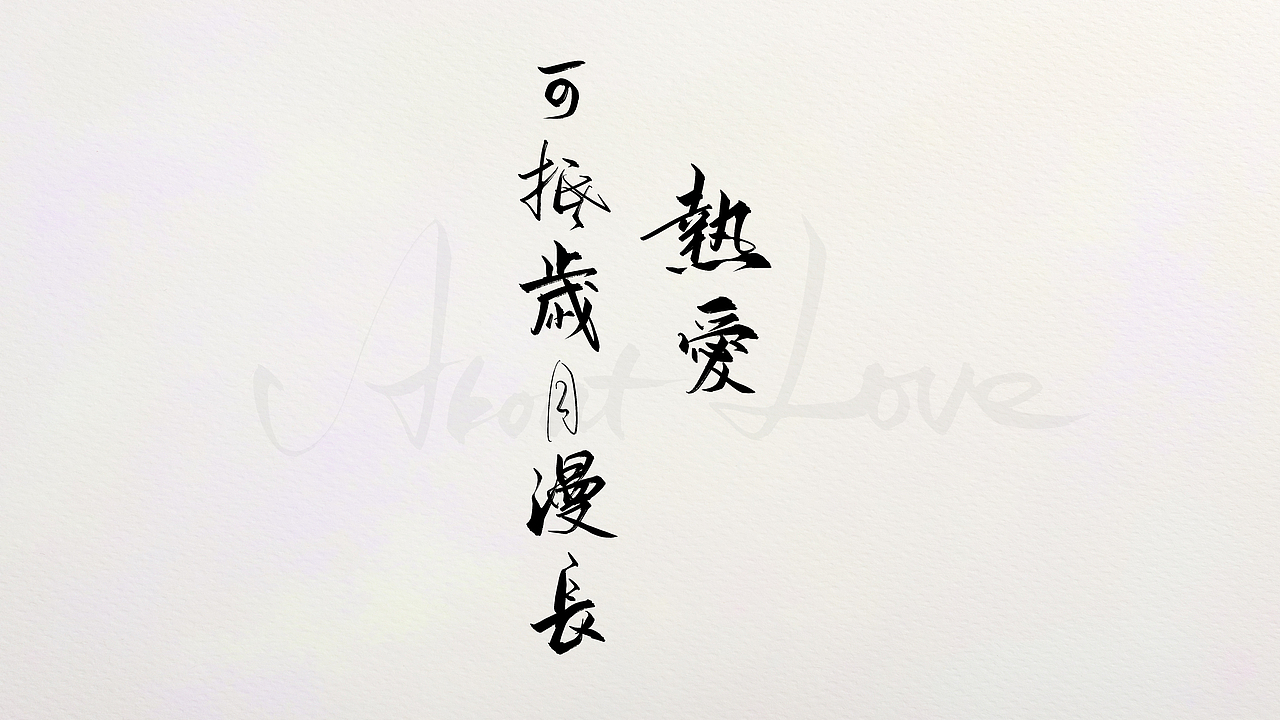 熱愛
可抵歲月漫長
About Love